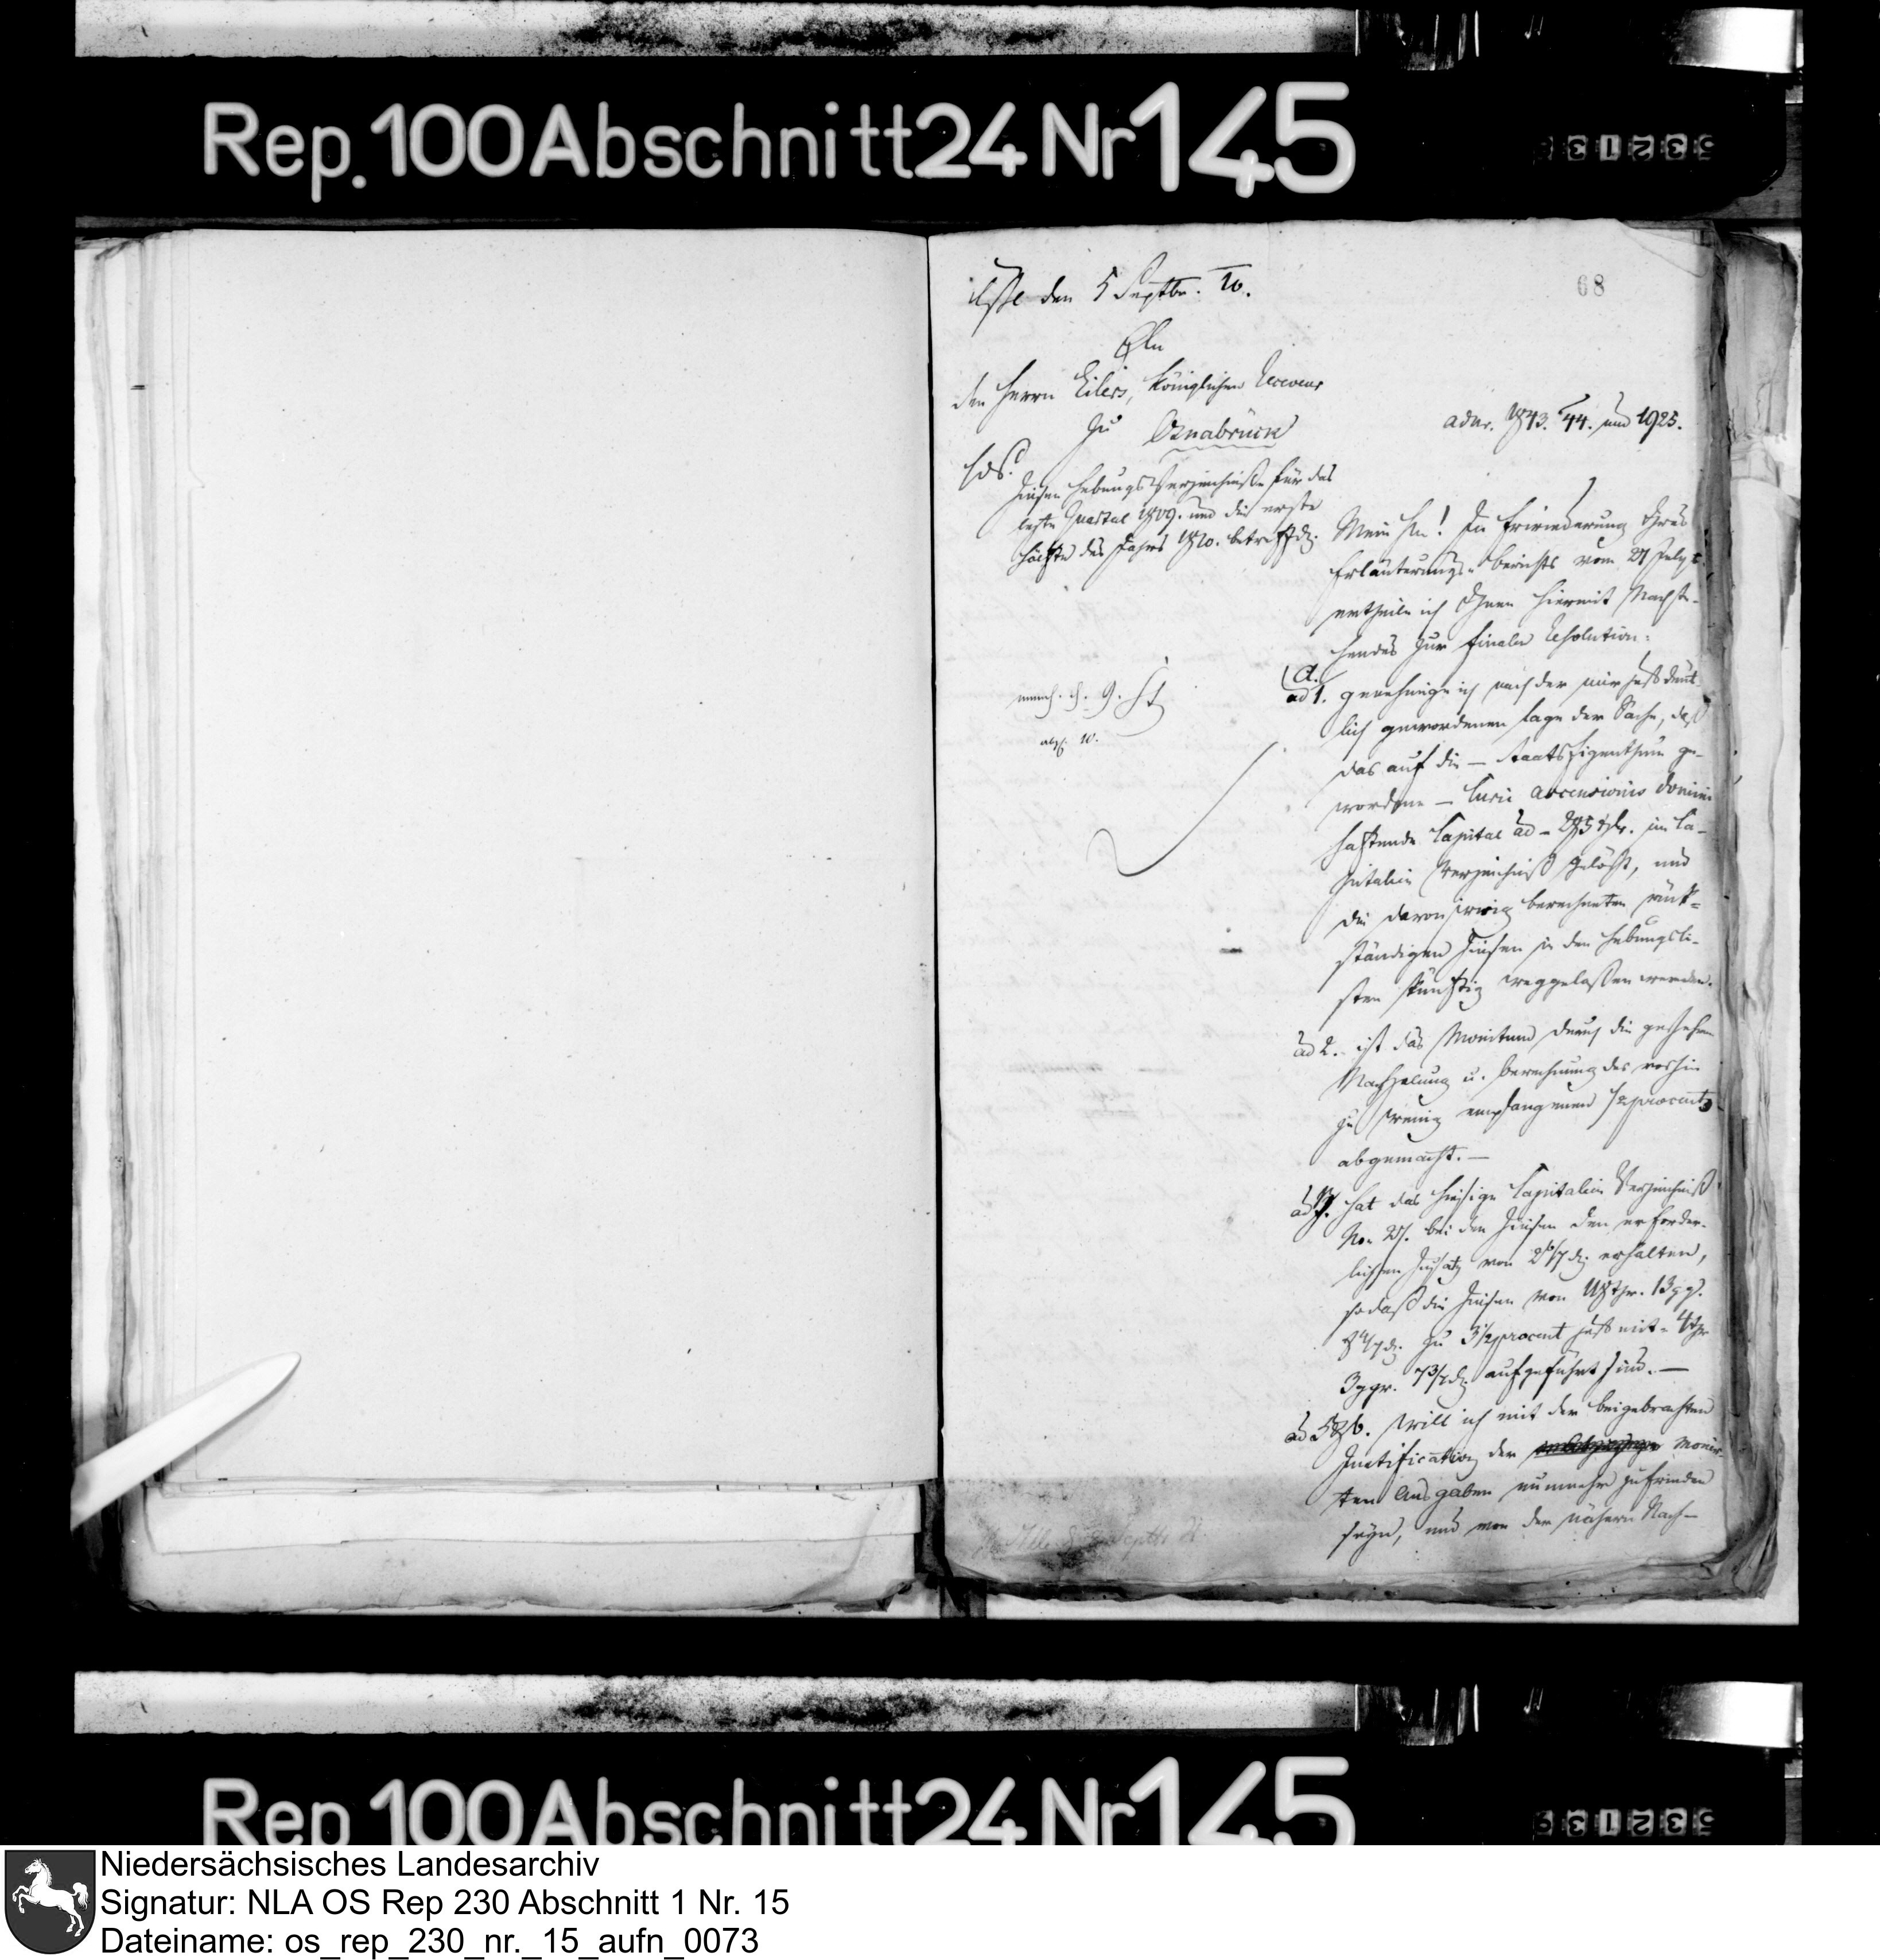 Rep. 100 Abschnitt 24 Nr 145
68
den 5 Septbr. 10.
An
den Herrn Eilers, Königlichen Receveur
zu Osnabrück
adnr. 1843. 44. und 1925.
Zinsen Hebungs Verzeichniße für das
lezte Quartal 1809. und die erste
Hälfte des Jahrs 1810. betreffd.
Mein Hr! In Erwiederung Ihres
Erläuterungs-berichts vom 21 July
ertheile ich Ihnen hiermit Nachste-
hendes zur finalen Resolution:
ad 1. genehmige ich nach der mir jezt deut-
lich gewordenen Lage der Sache, daß
das auf die — Staats Eigenthum ge-
wordene — Curie ascensionis domini
haftende Capital ad - 285 thlr. im Ca-
pitalien Verzeichniß gelöscht, und
die davon irrig berechneten rück-
ständigen Zinsen in den Hebungsli-
sten künftig weggelaßen werden.
ad 2. ist das Monitum durch die geschehene
Nachholung u. Berechnung des vorhin
zu wenig empfangenen 1/2 procents
abgemacht. —
hat das hiesige Capitalien Verzeichniß
No. 21. bei den Zinsen den erforder-
lichen Zusatz von 2 6/7 d. erhalten,
sodaß die Zinsen von 118 thr. 13 ggr.
8 4/7 d. zu 3 1/2 procent jezt mit - 4 thr
3 ggr. 7 3/7 d. aufgeführt sind. —
ad 5 & 6. will ich mit der beigebrachten
Justification der monir-
ten Ausgaben nunmehr zufrieden
seyn, und von der nähern Nach-
Rep 100 Abschnitt 24 Nr 145
Niedersächsisches Landesarchiv
Signatur: NLA OS Rep 230 Abschnitt 1 Nr. 15
Dateiname: os_rep_230_nr._15_aufn_0073